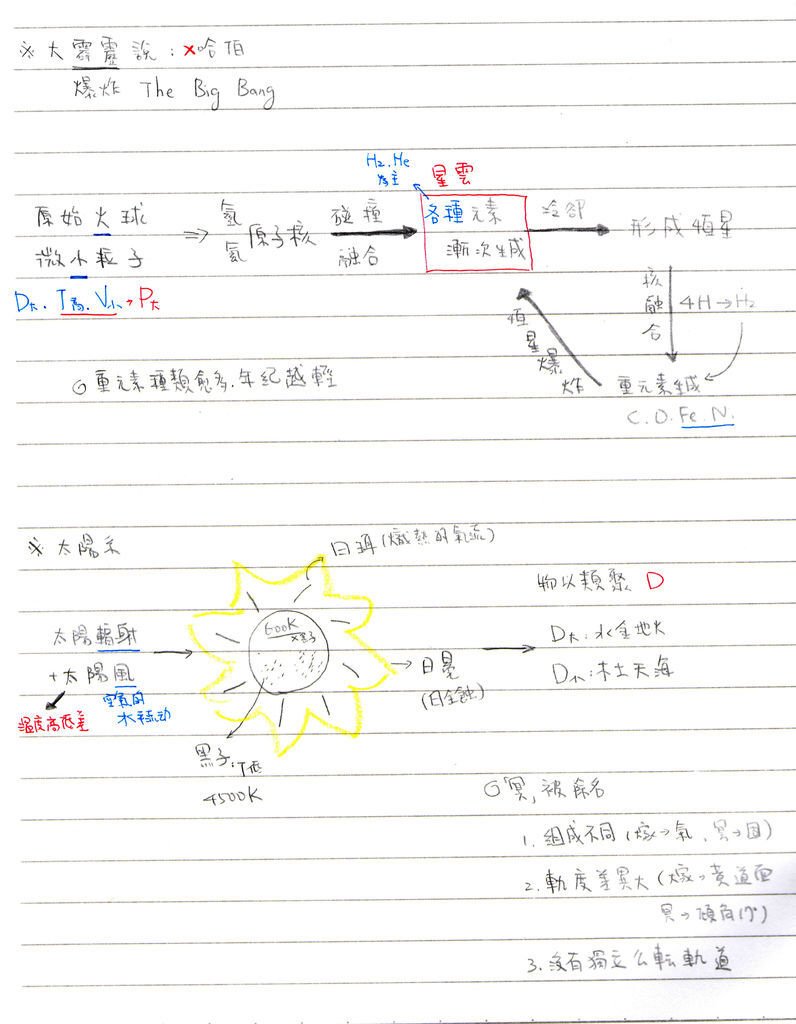 ※ 大霹靂說：×哈伯
爆炸 The Big Bang
H₂.He
為主
星雲
原始火球
微小粒子
⇒
氫
氦
原子核
碰撞
融合
各種元素
漸次生成
冷卻
形成恆星
D大. T高. V小 → P大
核融合
4H→H₂
恆星爆炸
重元素生成
C.O.Fe.N.
◎ 重元素種類愈多.年紀越輕
※ 太陽系
日珥(熾熱的氣流)
物以類聚 D
太陽輻射
+太陽風
600K
×黑子
D大:水金地火
D小:木土天海
日冕
(日全蝕)
溫度高低差
空氣的
水平流动
黑子:T低
4500K
◎冥,被除名
1. 組成不同(→氣、冥→固)
2. 軌度差異大(→黃道面
冥→傾角17°)
3. 沒有獨立公転軌道